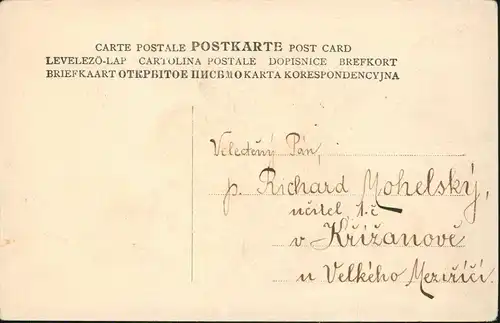 CARTE POSTALE POSTKARTE POST CARD
LEVELEZŐ-LAP CARTOLINA POSTALE DOPISNICE BREFKORT
BRIEFKAART ОТКРЫТОЕ ПИСЬМО KARTA KORESPONDENCYJNA
Veleděný Pán,
p. Richard Mohelský,
učitel t. č
v Křižanově
u Velkého Meziříčí.